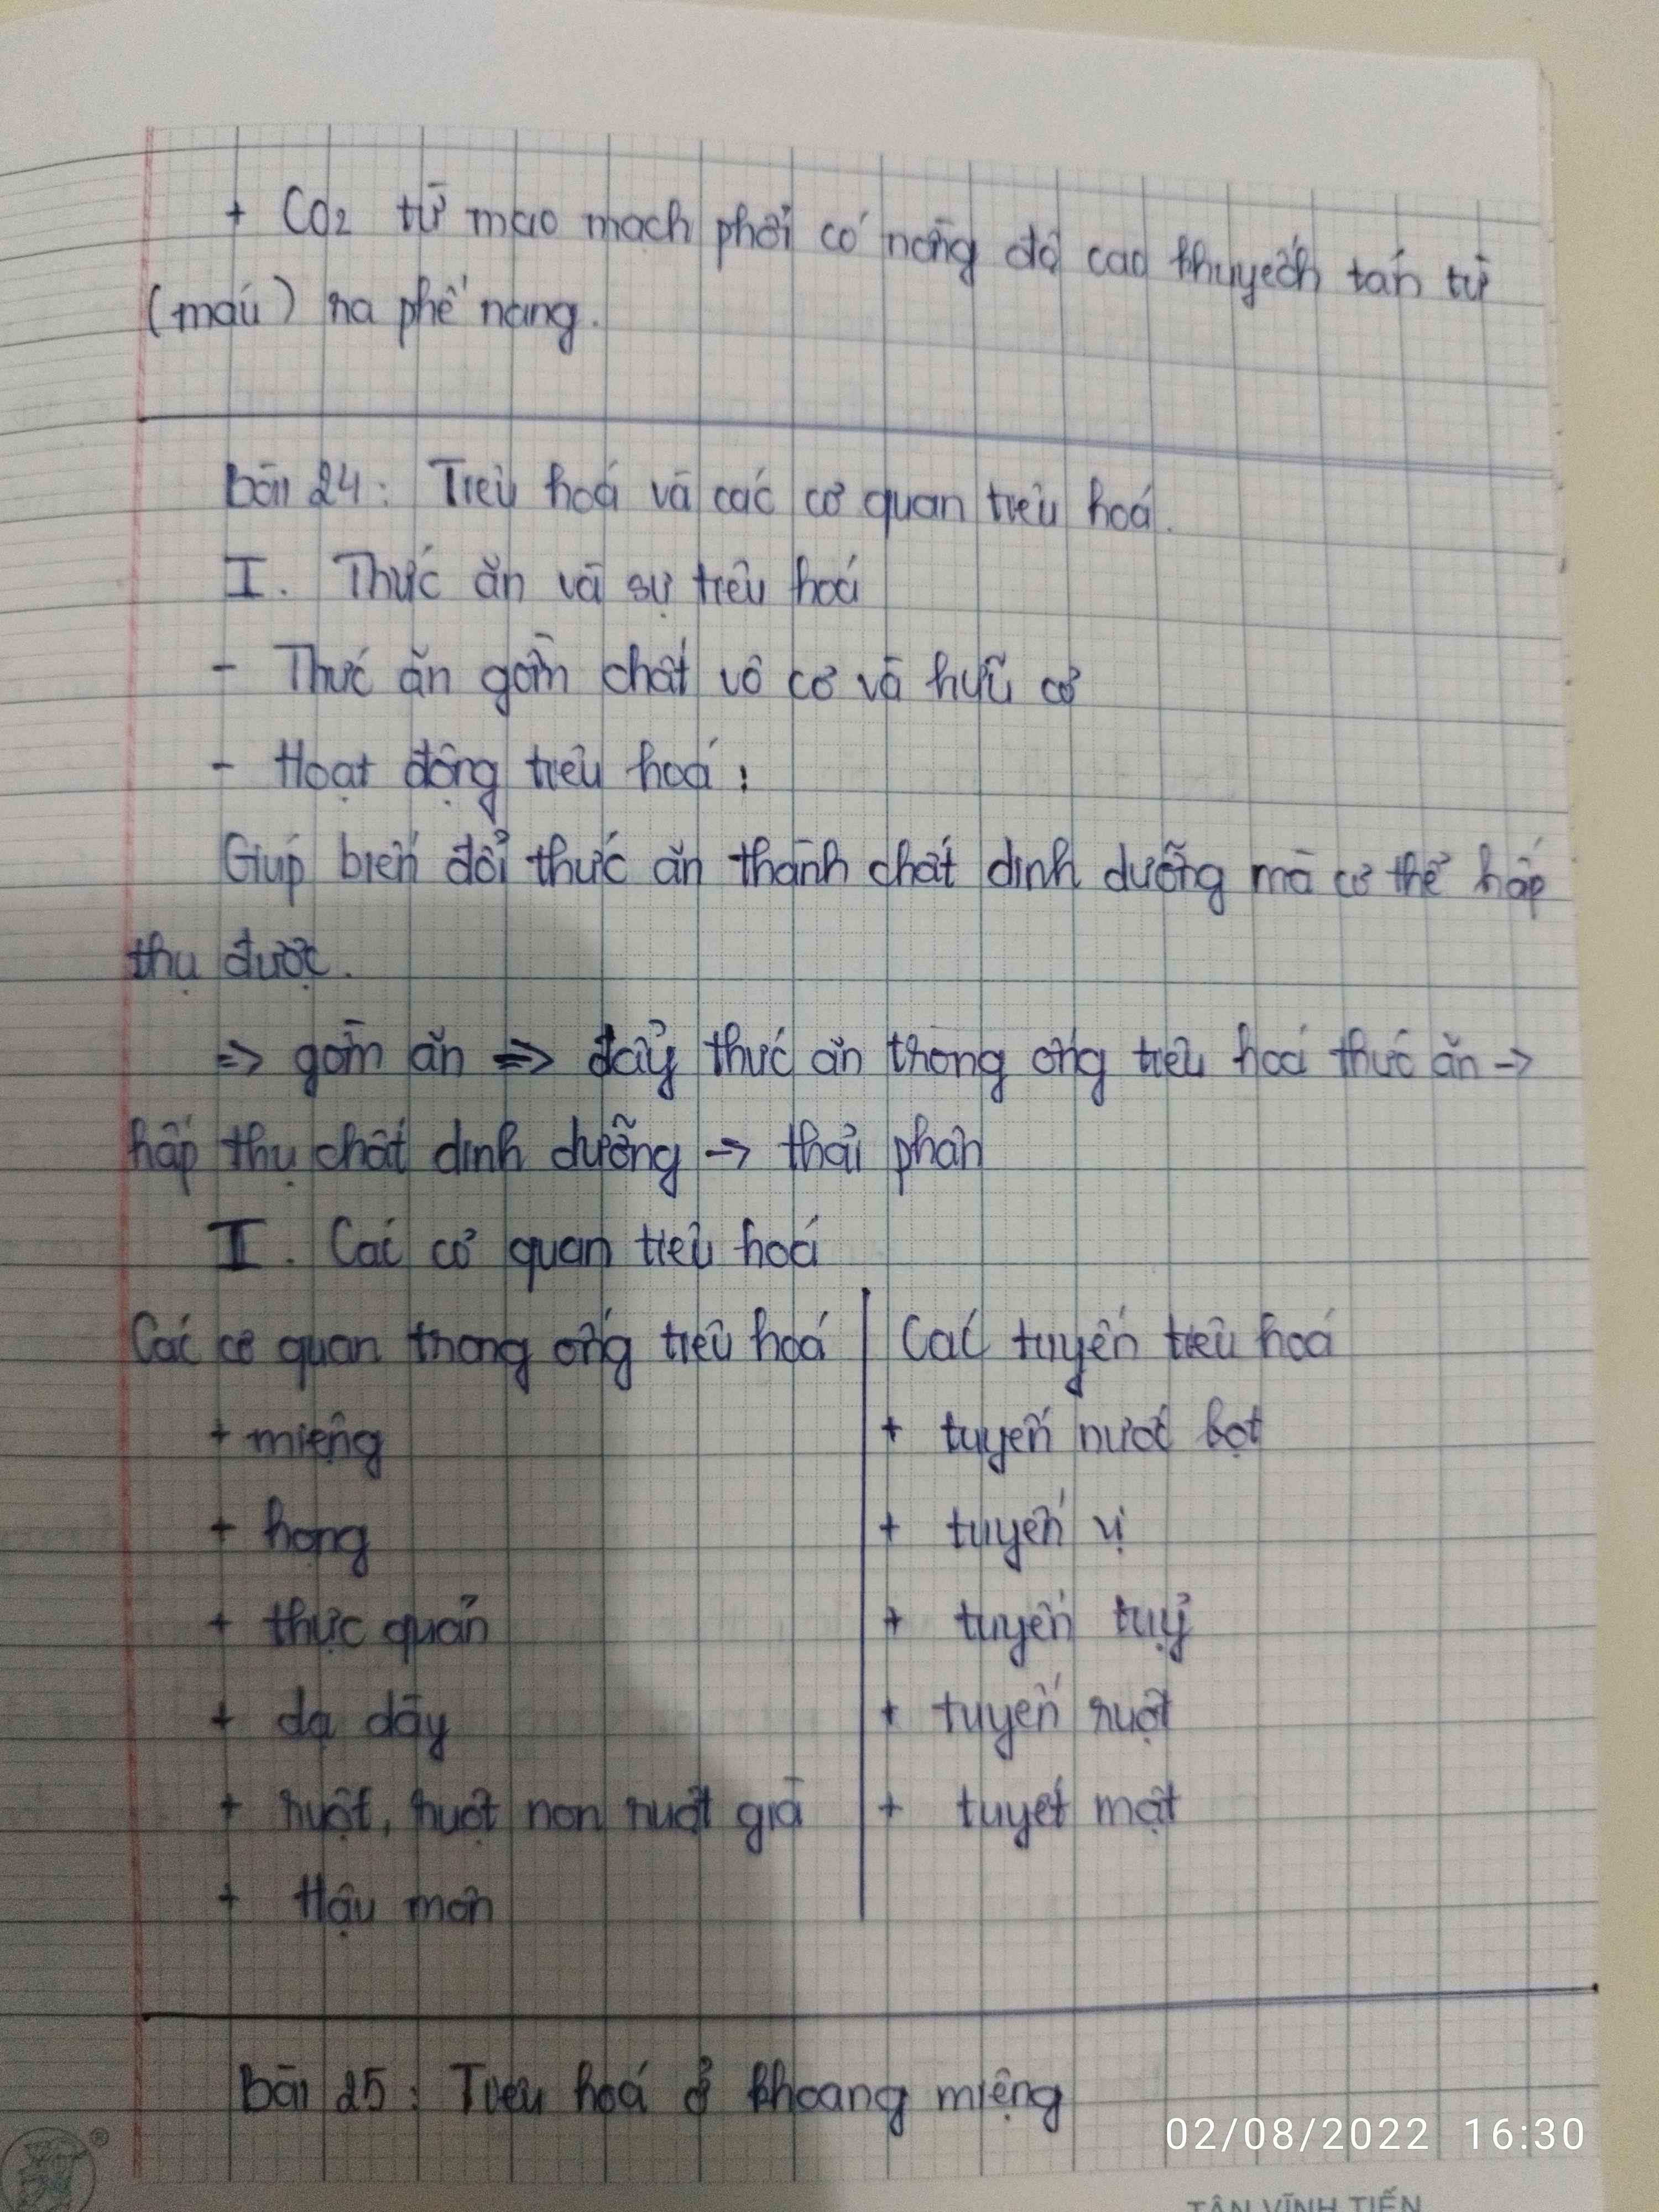 + CO2 từ mao mạch phổi có nồng độ cao khuyếch tán từ
(máu) ra phế nang.
bài 24: Tiêu hoá và các cơ quan tiêu hoá.
I. Thức ăn và sự tiêu hoá
- Thức ăn gồm chất vô cơ và hữu cơ
- Hoạt động tiêu hoá:
Giúp biến đổi thức ăn thành chất dinh dưỡng mà cơ thể hấp
thụ được.
=> gồm ăn => đẩy thức ăn trong ống tiêu hoá thức ăn ->
hấp thụ chất dinh dưỡng -> thải phân
II. Các cơ quan tiêu hoá
Các cơ quan trong ống tiêu hoá | Các tuyến tiêu hoá
+ miệng + tuyến nước bọt
+ họng + tuyến vị
+ thực quản + tuyến tuỵ
+ dạ dày + tuyến ruột
+ ruột, ruột non ruột già + tuyết mật
+ Hậu môn
bài 25: Tiêu hoá ở khoang miệng
02/08/2022 16:30
TÂN VĨNH TIẾN